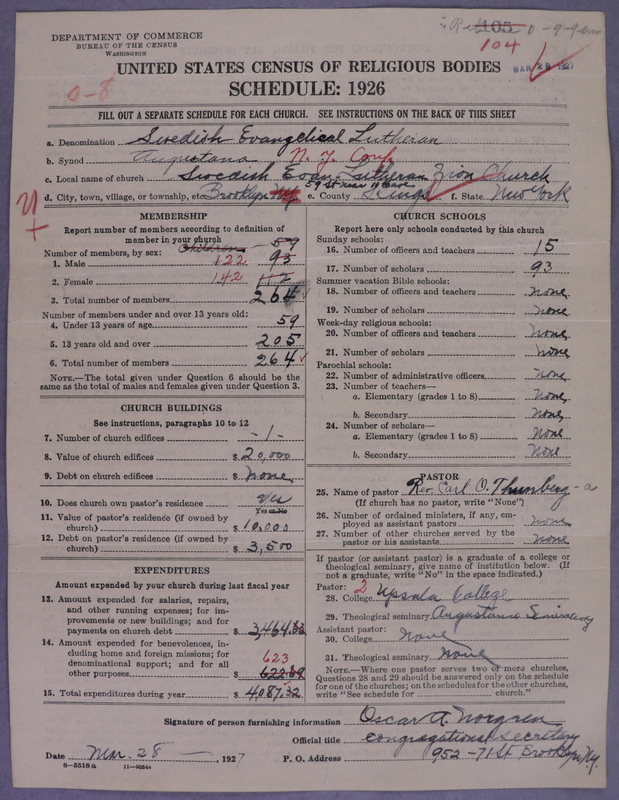 DEPARTMENT OF COMMERCE
BUREAU OF THE CENSUS
WASHINGTON
105
104
MAR 28 1927
UNITED STATES CENSUS OF RELIGIOUS BODIES
SCHEDULE: 1926
0-8
FILL OUT A SEPARATE SCHEDULE FOR EACH CHURCH. SEE INSTRUCTIONS ON THE BACK OF THIS SHEET
a. Denomination Swedish Evangelical Lutheran
b. Synod Augustana N. Y. Conf.
c. Local name of church Swedish Evan. Lutheran Zion Church
d. City, town, village, or township, etc. Brooklyn NY 59 St near 11 Ave e. County Kings f. State New York
MEMBERSHIP
Report number of members according to definition of
member in your church
Number of members, by sex: Children - 59
1. Male 122 93
2. Female 142 112
3. Total number of members 264
Number of members under and over 13 years old:
4. Under 13 years of age 59
5. 13 years old and over 205
6. Total number of members 264
NOTE.—The total given under Question 6 should be
same as the total of males and females given under Question 3.
CHURCH BUILDINGS
See instructions, paragraphs 10 to 12
7. Number of church edifices -1-
8. Value of church edifices $ 20,000
9. Debt on church edifices $ None
10. Does church own pastor's residence Yes
Yes or No
11. Value of pastor's residence (if owned by
church) $ 10,000
12. Debt on pastor's residence (if owned by
church) $ 3,500
EXPENDITURES
Amount expended by your church during last fiscal year
13. Amount expended for salaries, repairs,
and other running expenses; for im-
provements or new buildings; and for
payments on church debt $ 3,464.83
14. Amount expended for benevolences, in-
cluding home and foreign missions; for
denominational support; and for all
other purposes 623
$ 622.49
15. Total expenditures during year $ 4,087.32
CHURCH SCHOOLS
Report here only schools conducted by this church
Sunday schools:
16. Number of officers and teachers 15
17. Number of scholars 93
Summer vacation Bible schools:
18. Number of officers and teachers None
19. Number of scholars None
Week-day religious schools:
20. Number of officers and teachers None
21. Number of scholars None
Parochial schools:
22. Number of administrative officers None
23. Number of teachers—
a. Elementary (grades 1 to 8) None
b. Secondary None
24. Number of scholars—
a. Elementary (grades 1 to 8) None
b. Secondary None
PASTOR
25. Name of pastor Rev. Carl O. Thunberg - a
(If church has no pastor, write "None")
26. Number of ordained ministers, if any, em-
ployed as assistant pastors None
27. Number of other churches served by the
pastor or his assistants None
If pastor (or assistant pastor) is a graduate of a college or
theological seminary, give name of institution below. (If
not a graduate, write "No" in the space indicated.)
Pastor: 2
28. College Upsala College
29. Theological seminary Augustana Seminary
Assistant pastor:
30. College None
31. Theological seminary None
NOTE.—Where one pastor serves two or more churches,
Questions 28 and 29 should be answered only on the schedule
for one of the churches; on the schedules for the other churches,
write "See schedule for church."
Signature of person furnishing information Oscar A. Norgren
Official title Congregational Secretary
Date Mar. 28, 1927 P. O. Address 952-71 St Brooklyn N.Y.
8-5518 a